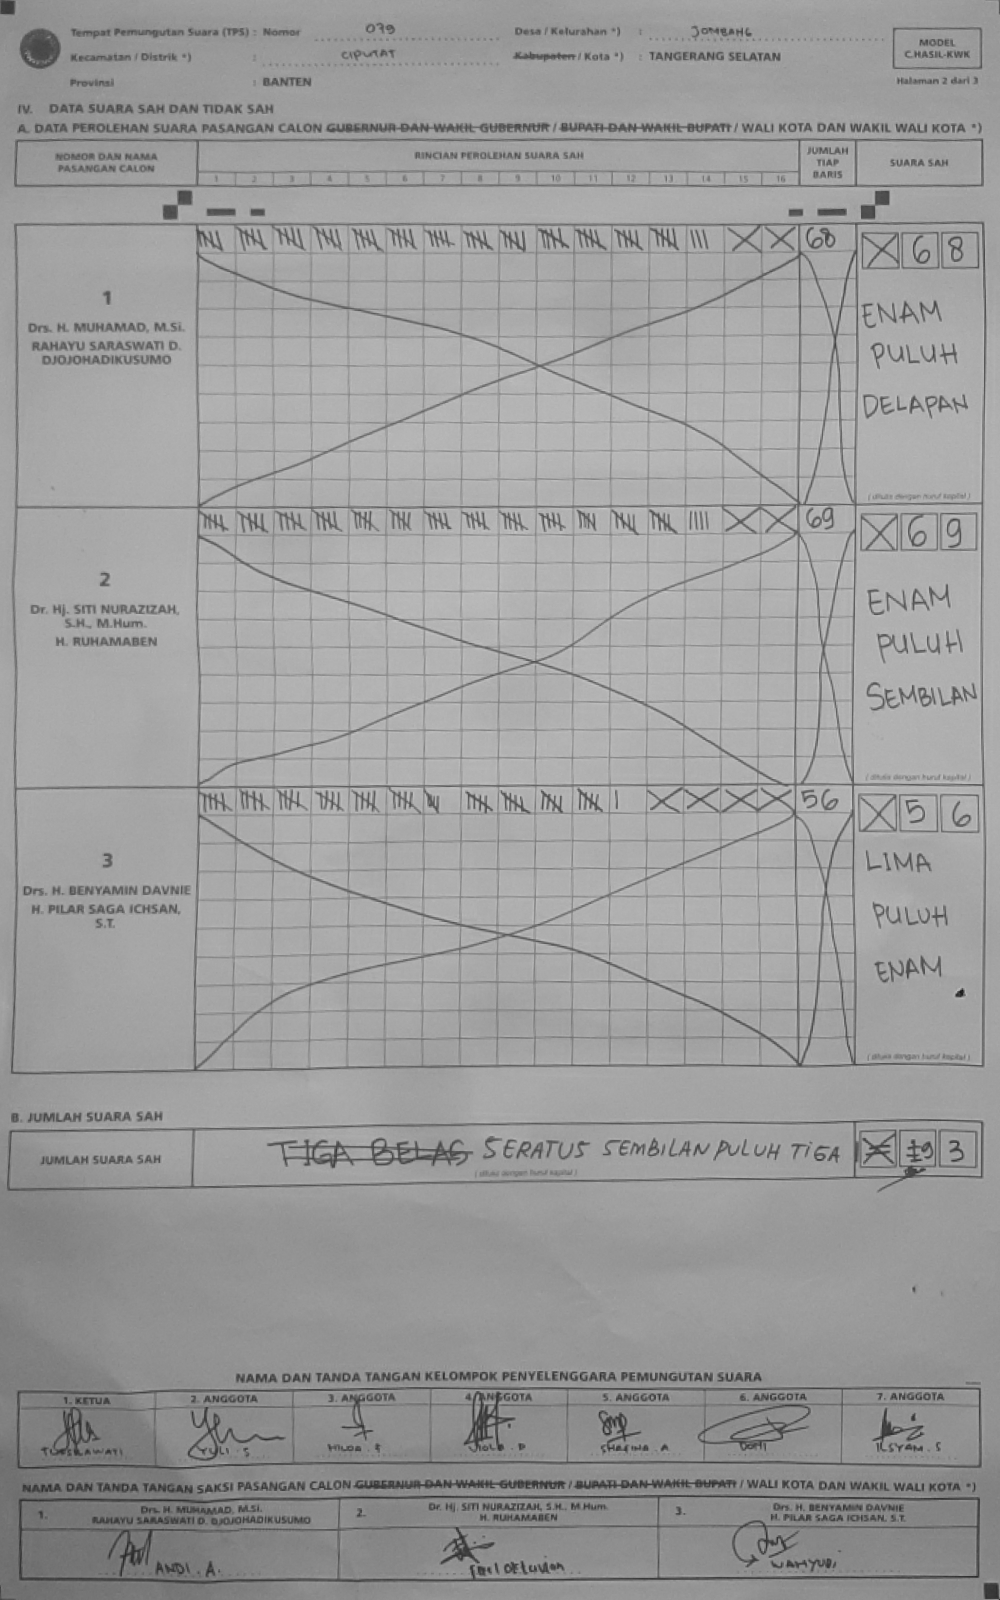 Tempat Pemungutan Suara (TPS) : Nomor 079 Desa / Kelurahan *) : JOMBANG
Kecamatan / Distrik *) : CIPUTAT Kabupaten / Kota *) : TANGERANG SELATAN
Provinsi : BANTEN
MODEL
C.HASIL-KWK
Halaman 2 dari 3
IV. DATA SUARA SAH DAN TIDAK SAH
A. DATA PEROLEHAN SUARA PASANGAN CALON GUBERNUR DAN WAKIL GUBERNUR / BUPATI DAN WAKIL BUPATI / WALI KOTA DAN WAKIL WALI KOTA *)
NOMOR DAN NAMA
PASANGAN CALON
RINCIAN PEROLEHAN SUARA SAH
1 2 3 4 5 6 7 8 9 10 11 12 13 14 15 16
JUMLAH
TIAP
BARIS
SUARA SAH
1
Drs. H. MUHAMAD, M.Si.
RAHAYU SARASWATI D.
DJOJOHADIKUSUMO
68
X 6 8
ENAM
PULUH
DELAPAN
( ditulis dengan huruf kapital )
2
Dr. Hj. SITI NURAZIZAH,
S.H., M.Hum.
H. RUHAMABEN
69
X 6 9
ENAM
PULUH
SEMBILAN
( ditulis dengan huruf kapital )
3
Drs. H. BENYAMIN DAVNIE
H. PILAR SAGA ICHSAN,
S.T.
56
X 5 6
LIMA
PULUH
ENAM
( ditulis dengan huruf kapital )
B. JUMLAH SUARA SAH
JUMLAH SUARA SAH
TIGA BELAS SERATUS SEMBILAN PULUH TIGA
( ditulis dengan huruf kapital )
9 3
NAMA DAN TANDA TANGAN KELOMPOK PENYELENGGARA PEMUNGUTAN SUARA
1. KETUA 2. ANGGOTA 3. ANGGOTA 4. ANGGOTA 5. ANGGOTA 6. ANGGOTA 7. ANGGOTA
YULI . S DONI ILSYAM . S
NAMA DAN TANDA TANGAN SAKSI PASANGAN CALON GUBERNUR DAN WAKIL GUBERNUR / BUPATI DAN WAKIL BUPATI / WALI KOTA DAN WAKIL WALI KOTA *)
1. Drs. H. MUHAMAD, M.Si.
RAHAYU SARASWATI D. DJOJOHADIKUSUMO
2. Dr. Hj. SITI NURAZIZAH, S.H., M.Hum.
H. RUHAMABEN
3. Drs. H. BENYAMIN DAVNIE
H. PILAR SAGA ICHSAN, S.T.
ANDI . A. WAHYUDI